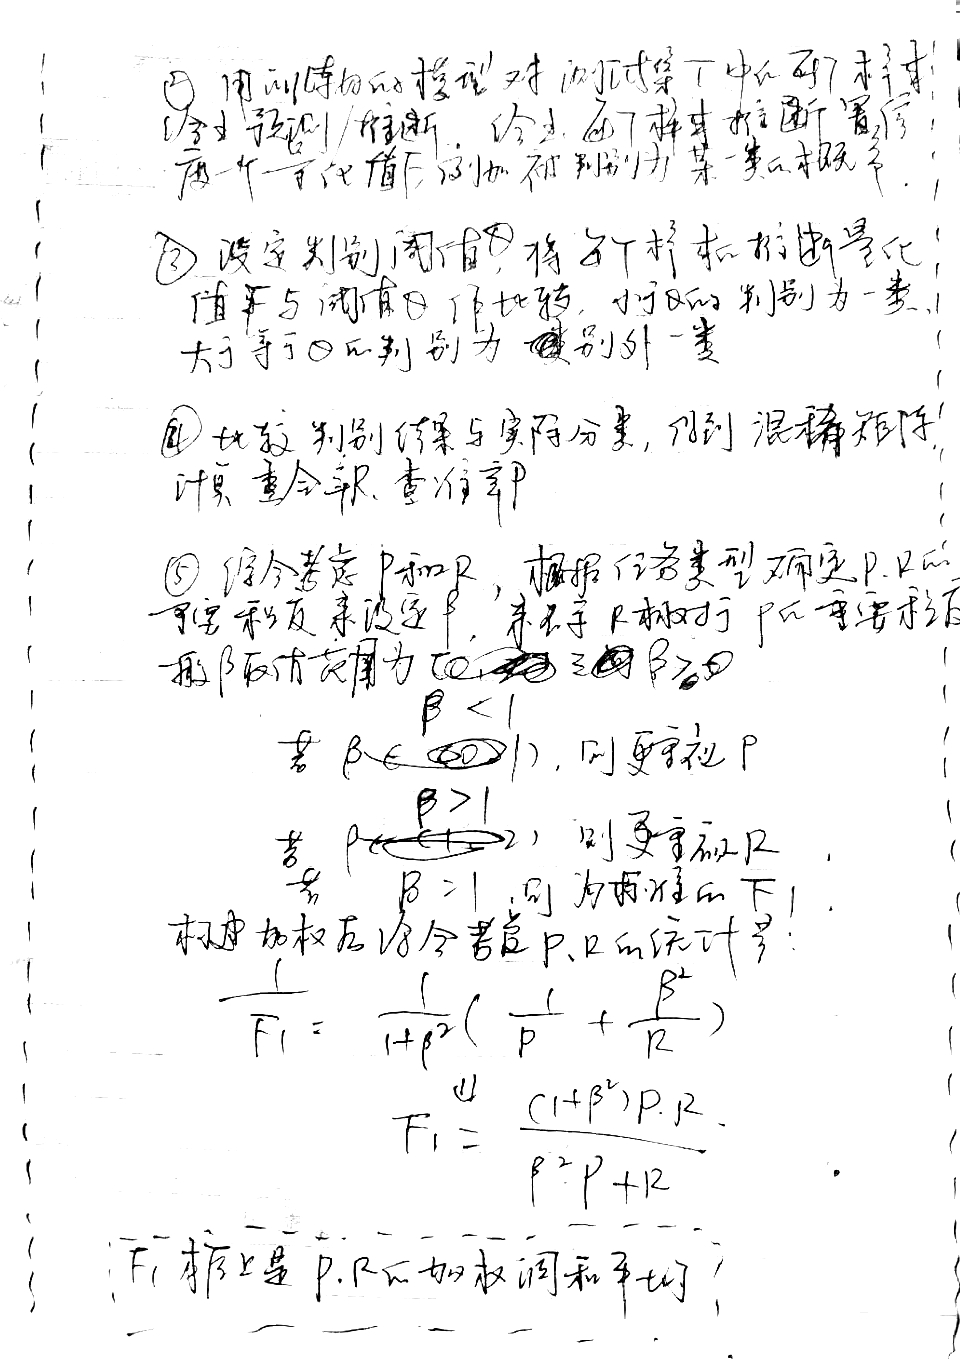 ② 用训练好的模型对测试集T中的每个样本
给出预测/推断，给出每个样本推断置信
度一个量化值F，例如被判别为某一类的概率.
③ 设定判别阈值θ，将每个样本的推断量化
值F与阈值θ作比较，小于θ的判别为一类，
大于等于θ的判别为别外一类
④ 比较判别结果与实际分类，得到混稀矩阵，
计算查全率R、查准率P
⑤ 综合考虑P和R，根据任务类型确定P、R的
重要程度来设定β，来表示R相对于P的重要程度
一般β取值范围为 β≥0
若 β<1，则更重视P
若 β>1，则更重视R
若 β=1，则为标准的F1.
构建加权后综合考虑P、R的统计量：
1/F1 = 1/(1+β²) (1/P + β²/R)
⇓
F1 = (1+β²)P·R / (β²·P+R)
F1本质上是P、R的加权调和平均